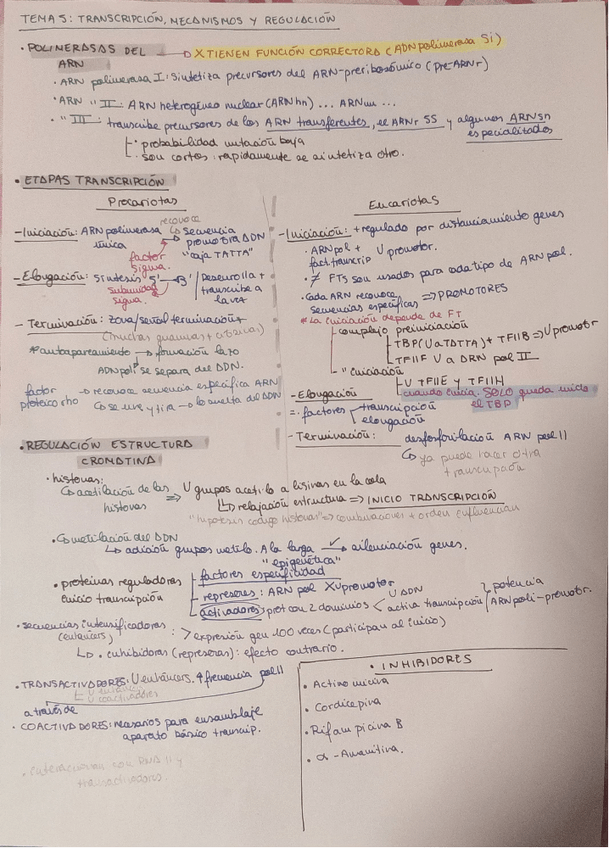 TEMA 5: TRANSCRIPCIÓN, MECANISMOS Y REGULACIÓN
• POLIMERASAS DEL ARN → X TIENEN FUNCIÓN CORRECTORA (ADN polimerasa Sí)
• ARN polimerasa I: sintetiza precursores del ARN-preribosómico (pre-ARNr)
• ARN " II: ARN heterogéneo nuclear (ARNhn) ... ARNm ...
• " III: transcribe precursores de los ARN transferentes, el ARNr 5S y algunos ARNsn especializados
• probabilidad mutación baja
• son cortos, rapidamente se sintetiza otro.
• ETAPAS TRANSCRIPCIÓN
Procariotas
- Iniciación: ARN polimerasa única
reconoce
secuencia promotora ADN
"caja TATTA"
factor sigma.
- Elongación: síntesis 5' → 3'
subunidad sigma.
Desenrolla + transcribe a la vez
- Terminación: zona/señal terminación +
(muchas guaninas + citosinas)
*autoapareamiento → formación lazo
ADNpoli se separa del ADN.
factor proteico rho → reconoce secuencia específica ARN
se une y tira → lo suelta del ADN
Eucariotas
- Iniciación: + regulado por distanciamiento genes
• ARNpol + fact. transcrip U promotor.
• ≠ FTs son usados para cada tipo de ARN pol.
• Cada ARN reconoce secuencias específicas ⇒ PROMOTORES
*La iniciación depende de FT
- complejo preiniciación
TBP (U a TATTA) + TFIIB ⇒ U promotor
TFIIF U a ARN pol II
- " iniciación
U TFIIE y TFIIH
cuando inicia SOLO queda unido el TBP
- Elongación
= factores
transcripción
elongación
- Terminación: desfosforilación ARN pol II
ya puede hacer otra transcripción
• REGULACIÓN ESTRUCTURA CROMATINA
• histonas:
acetilación de las histonas ⇒ U grupos acetilo a lisinas en la cola
relajación estructura ⇒ INICIO TRANSCRIPCIÓN
"hipótesis código histonas" ⇒ combinaciones + orden influencian
• metilación del ADN
adición grupos metilo. A la larga → silenciación genes.
"epigenética"
• proteínas reguladoras inicio transcripción
factores especificidad
represores: ARN pol X U promotor
activadores: prot con 2 dominios
U ADN
activa transcripción
potencia ARNpoli-promotor.
• secuencias intensificadoras (enhancers) : > expresión gen 100 veces (participan al inicio)
• inhibidoras (represoras): efecto contrario.
• TRANSACTIVADORES: U enhancers. ↑ frecuencia pol II
U enhancers
U coactivadores
a través de
• COACTIVADORES: necesarios para ensamblaje aparato básico transcrip.
• interaccionan con RNA II y transactivadores.
• INHIBIDORES
• Actinomicina
• Cordicepina
• Rifampicina B
• α-Amanitina.